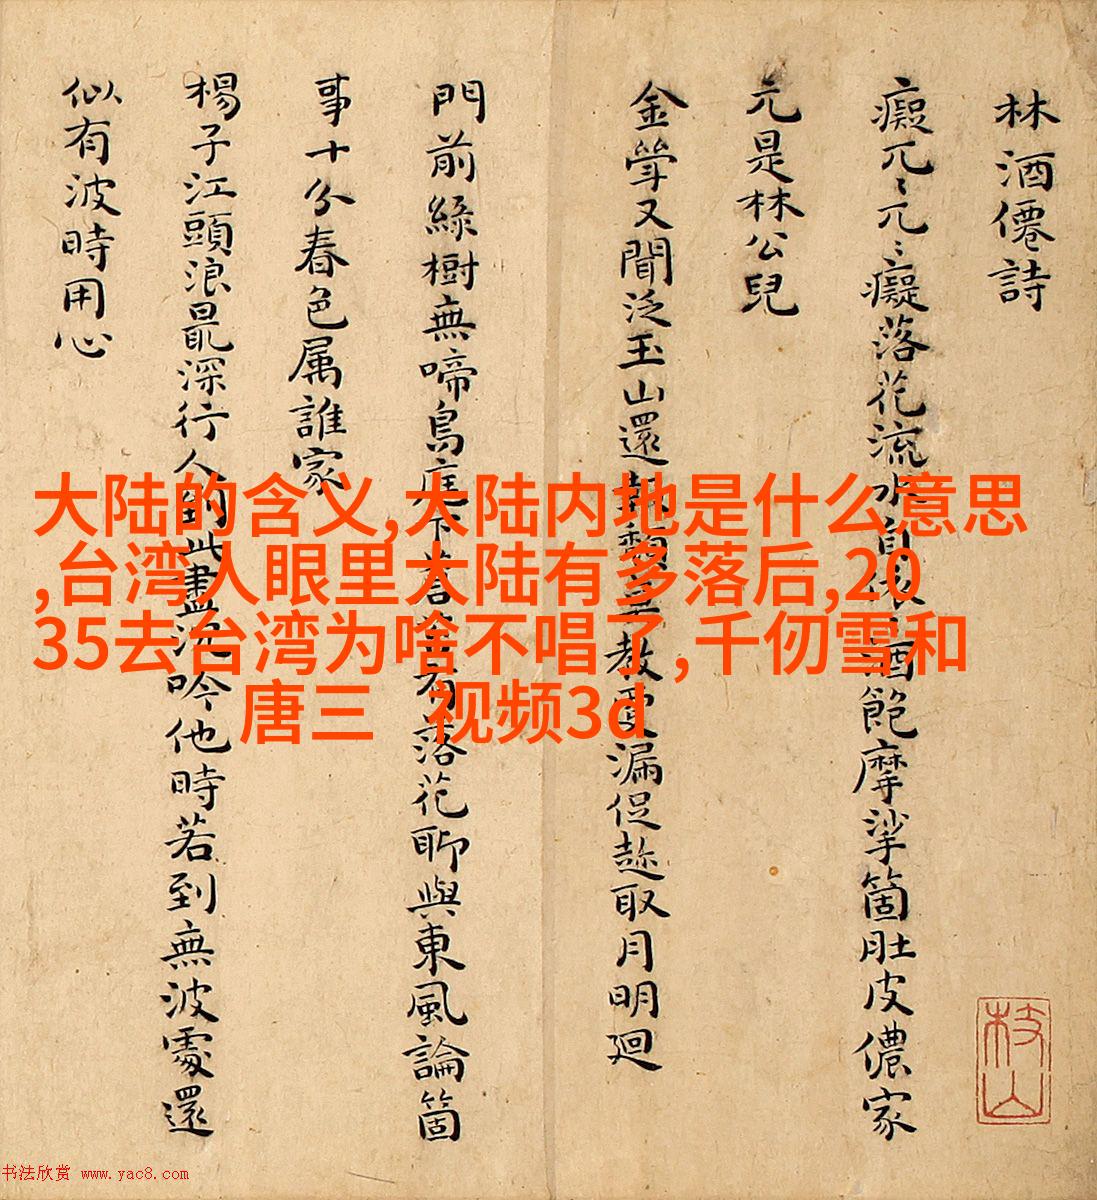 林酒僊詩
癡兀〻兀〻癡落花流水自
酒飽摩挲箇肚皮儂家
元是林公兒
金斝又聞泛玉山還
教更漏促趂取月明迴
門前綠樹無啼鳥庭下蒼苔有落花聊與東風論箇
事十分春色属誰家
楊子江頭浪最深行人到此盡沉吟他時若到無波處還
似有波時用心
枝山
大陆的含义,大陆内地是什么意思
,台湾人眼里大陆有多落后,20
35去台湾为啥不唱了,千仞雪和
唐三 视频3d
书法欣赏 www.yac8.com